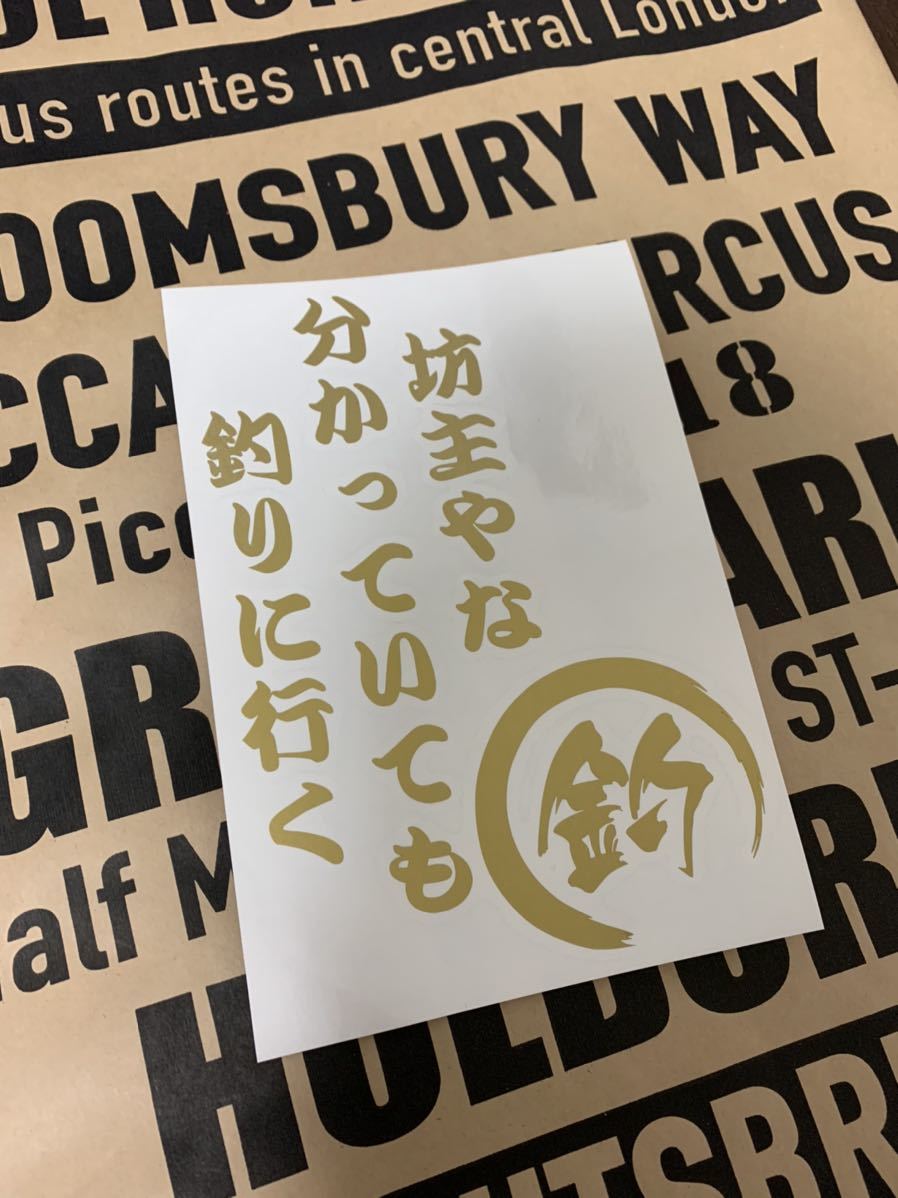 us routes in central London
OOMSBURY WAY
RCUS
CCA
18
Picc
GR
ST-
alf M
HOLBORN
坊主やな
分かっていても
釣りに行く
釣